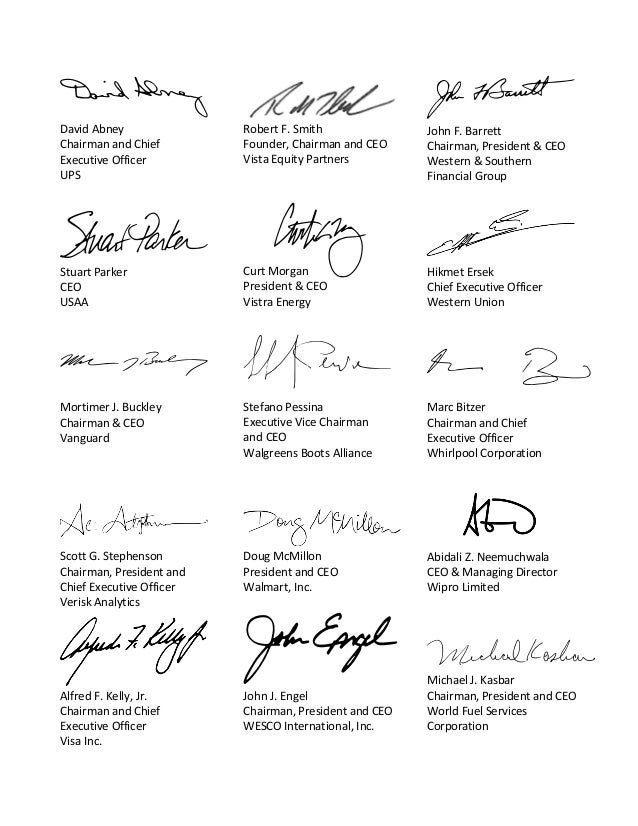 David Abney
David Abney
Chairman and Chief
Executive Officer
UPS
Robert F. Smith
Founder, Chairman and CEO
Vista Equity Partners
John F Barrett
John F. Barrett
Chairman, President & CEO
Western & Southern
Financial Group
Stuart Parker
Stuart Parker
CEO
USAA
Curt Morgan
President & CEO
Vistra Energy
Hikmet Ersek
Chief Executive Officer
Western Union
Mortimer J. Buckley
Chairman & CEO
Vanguard
Stefano Pessina
Executive Vice Chairman
and CEO
Walgreens Boots Alliance
Marc Bitzer
Chairman and Chief
Executive Officer
Whirlpool Corporation
Scott G. Stephenson
Chairman, President and
Chief Executive Officer
Verisk Analytics
Doug McMillon
Doug McMillon
President and CEO
Walmart, Inc.
Abidali Z. Neemuchwala
CEO & Managing Director
Wipro Limited
Alfred F. Kelly, Jr.
Chairman and Chief
Executive Officer
Visa Inc.
John Engel
John J. Engel
Chairman, President and CEO
WESCO International, Inc.
Michael Kasbar
Michael J. Kasbar
Chairman, President and CEO
World Fuel Services
Corporation